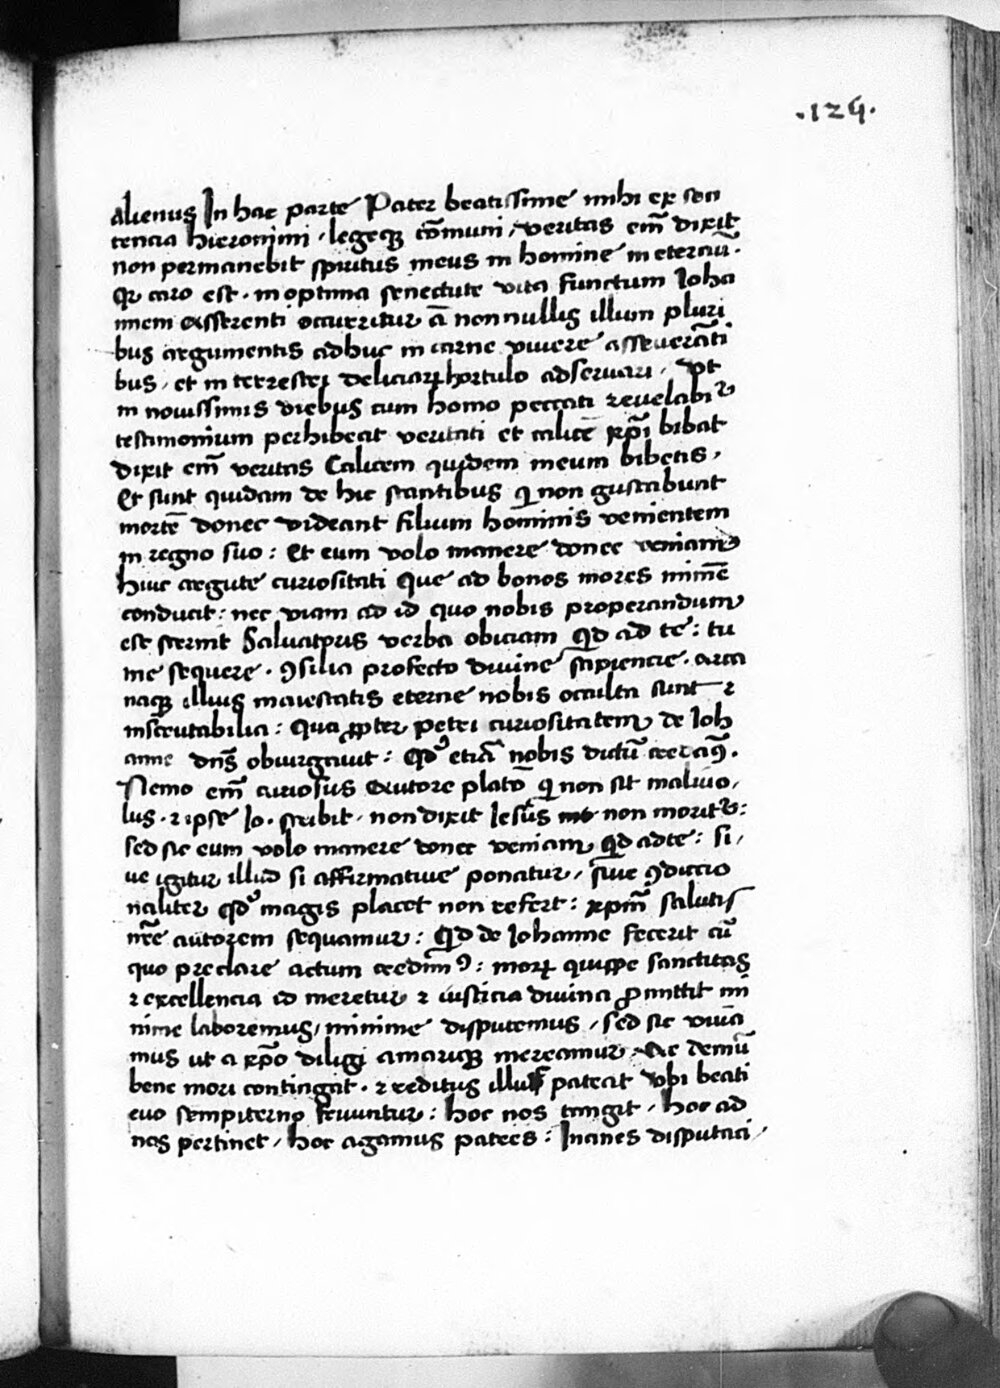 .124.
alienus In hac parte Pater beatissime mihi ex sen
tencia hieronimi, legeqꝫ cōmuni, veritas em̄ dixit
non permanebit spiritus meus in homine in eternū.
qr caro est. in optima senectute vita functum Joha
nnem asserenti occurritur a nonnullis illum pluri
bus argumentis adhuc in carne vivere asseverāti
bus, et in terrestri deliciaꝝ hortulo adservari, Vt
in novissimis diebus cum homo peccati revelabit᷑
testimonium perhibeat veritati et calicē xp̄i bibat
dixit em̄ veritas Calicem quidem meum bibetis,
Et sunt quidam de hic stantibus qi non gustabunt
mortē donec videant filium hominis venientem
in regno suo: Et eum volo manere donec veniam
huic argute curiositati Que ad bonos mores minīe
conducit: nec viam ad id quo nobis properandum
est sternit Salvatoris verba obiciam Qd ad te: tu
me sequere. ꝯsilia profecto divine sapiencie. arca
naqꝫ illius maiestatis eterne nobis occulta sunt ⁊
inscrutabilia: Qua ꝓpter petri curiositatem de Joh
anne dn̄s obiurgavit: Qdꝰ etiā nobis dictū credamꝰ.
Nemo em̄ curiosus Autore platoē qi non sit malivo,
lus. ⁊ ipse Jo. scribit, non dixit Jesus non morit᷑:
sed sic eum volo manere donec veniam Qd ad te: si,
ve igitur illud si affirmative ponatur, sive ꝯdicio
naliter qdꝰ magis placet non refert: xpm̄ salutis
nr̄e autorem sequamur: Qd de Johanne fecerit cū
quo preclare actum credimꝰ: moꝝ quippe sanctitas
⁊ excellencia id meretur ⁊ iusticia divina ꝓmittit mi
nime laboremus, minime disputemus, sed sic vivā
mus ut a xp̄o diligi amariqꝫ mereamur. Ac demū
bene mori contingat. ⁊ reditus illuc pateat Vbi beati
evo sempiterno fruuntur: hoc nos tangit, hoc ad
nos pertinet, hoc agamus patres: Inanes disputaci,